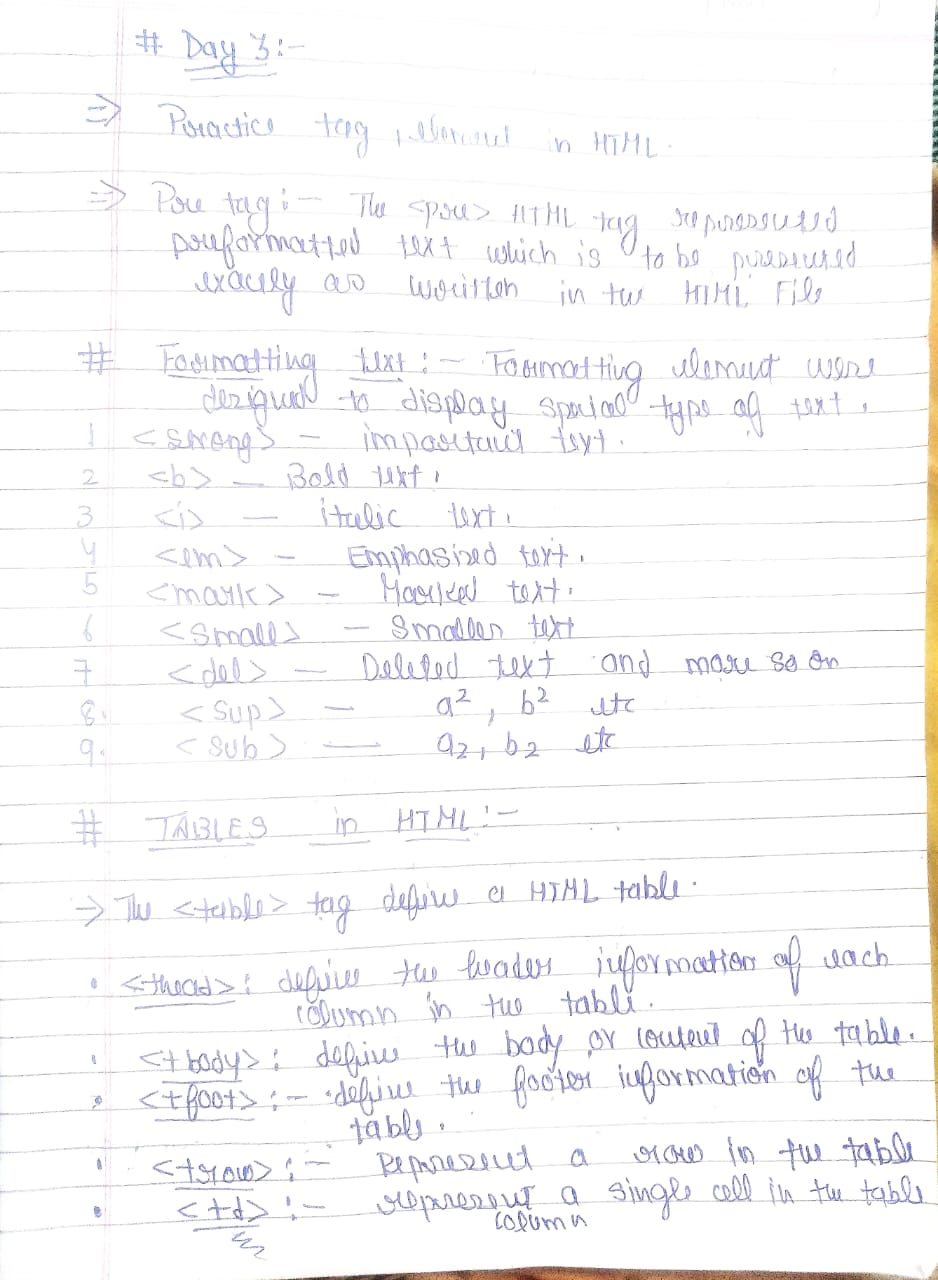 # Day 3:-
=> Practice tag, element in HTML.
=> Pre tag:- The <pre> HTML tag represented
preformatted text which is to be presented
exactly as written in the HTML File
# Formatting text:- Formatting element were
designed to display special type of text.
1 <strong> - important text.
2 <b> - Bold text.
3 <i> - italic text.
4 <em> - Emphasized text.
5 <mark> - Marked text.
6 <Small> - Smaller text
7 <del> - Deleted text and more so on
8. <Sup> - a², b² etc
9. <Sub> - a₂, b₂ etc
# TABLES in HTML:-
-> The <table> tag define a HTML table.
• <thead>: define the header information of each
column in the table.
• <tbody>: define the body or content of the table.
• <tfoot>:- define the footer information of the
table.
• <trow>:- Represent a row in the table
• <td>:- represent a single cell in the table
column